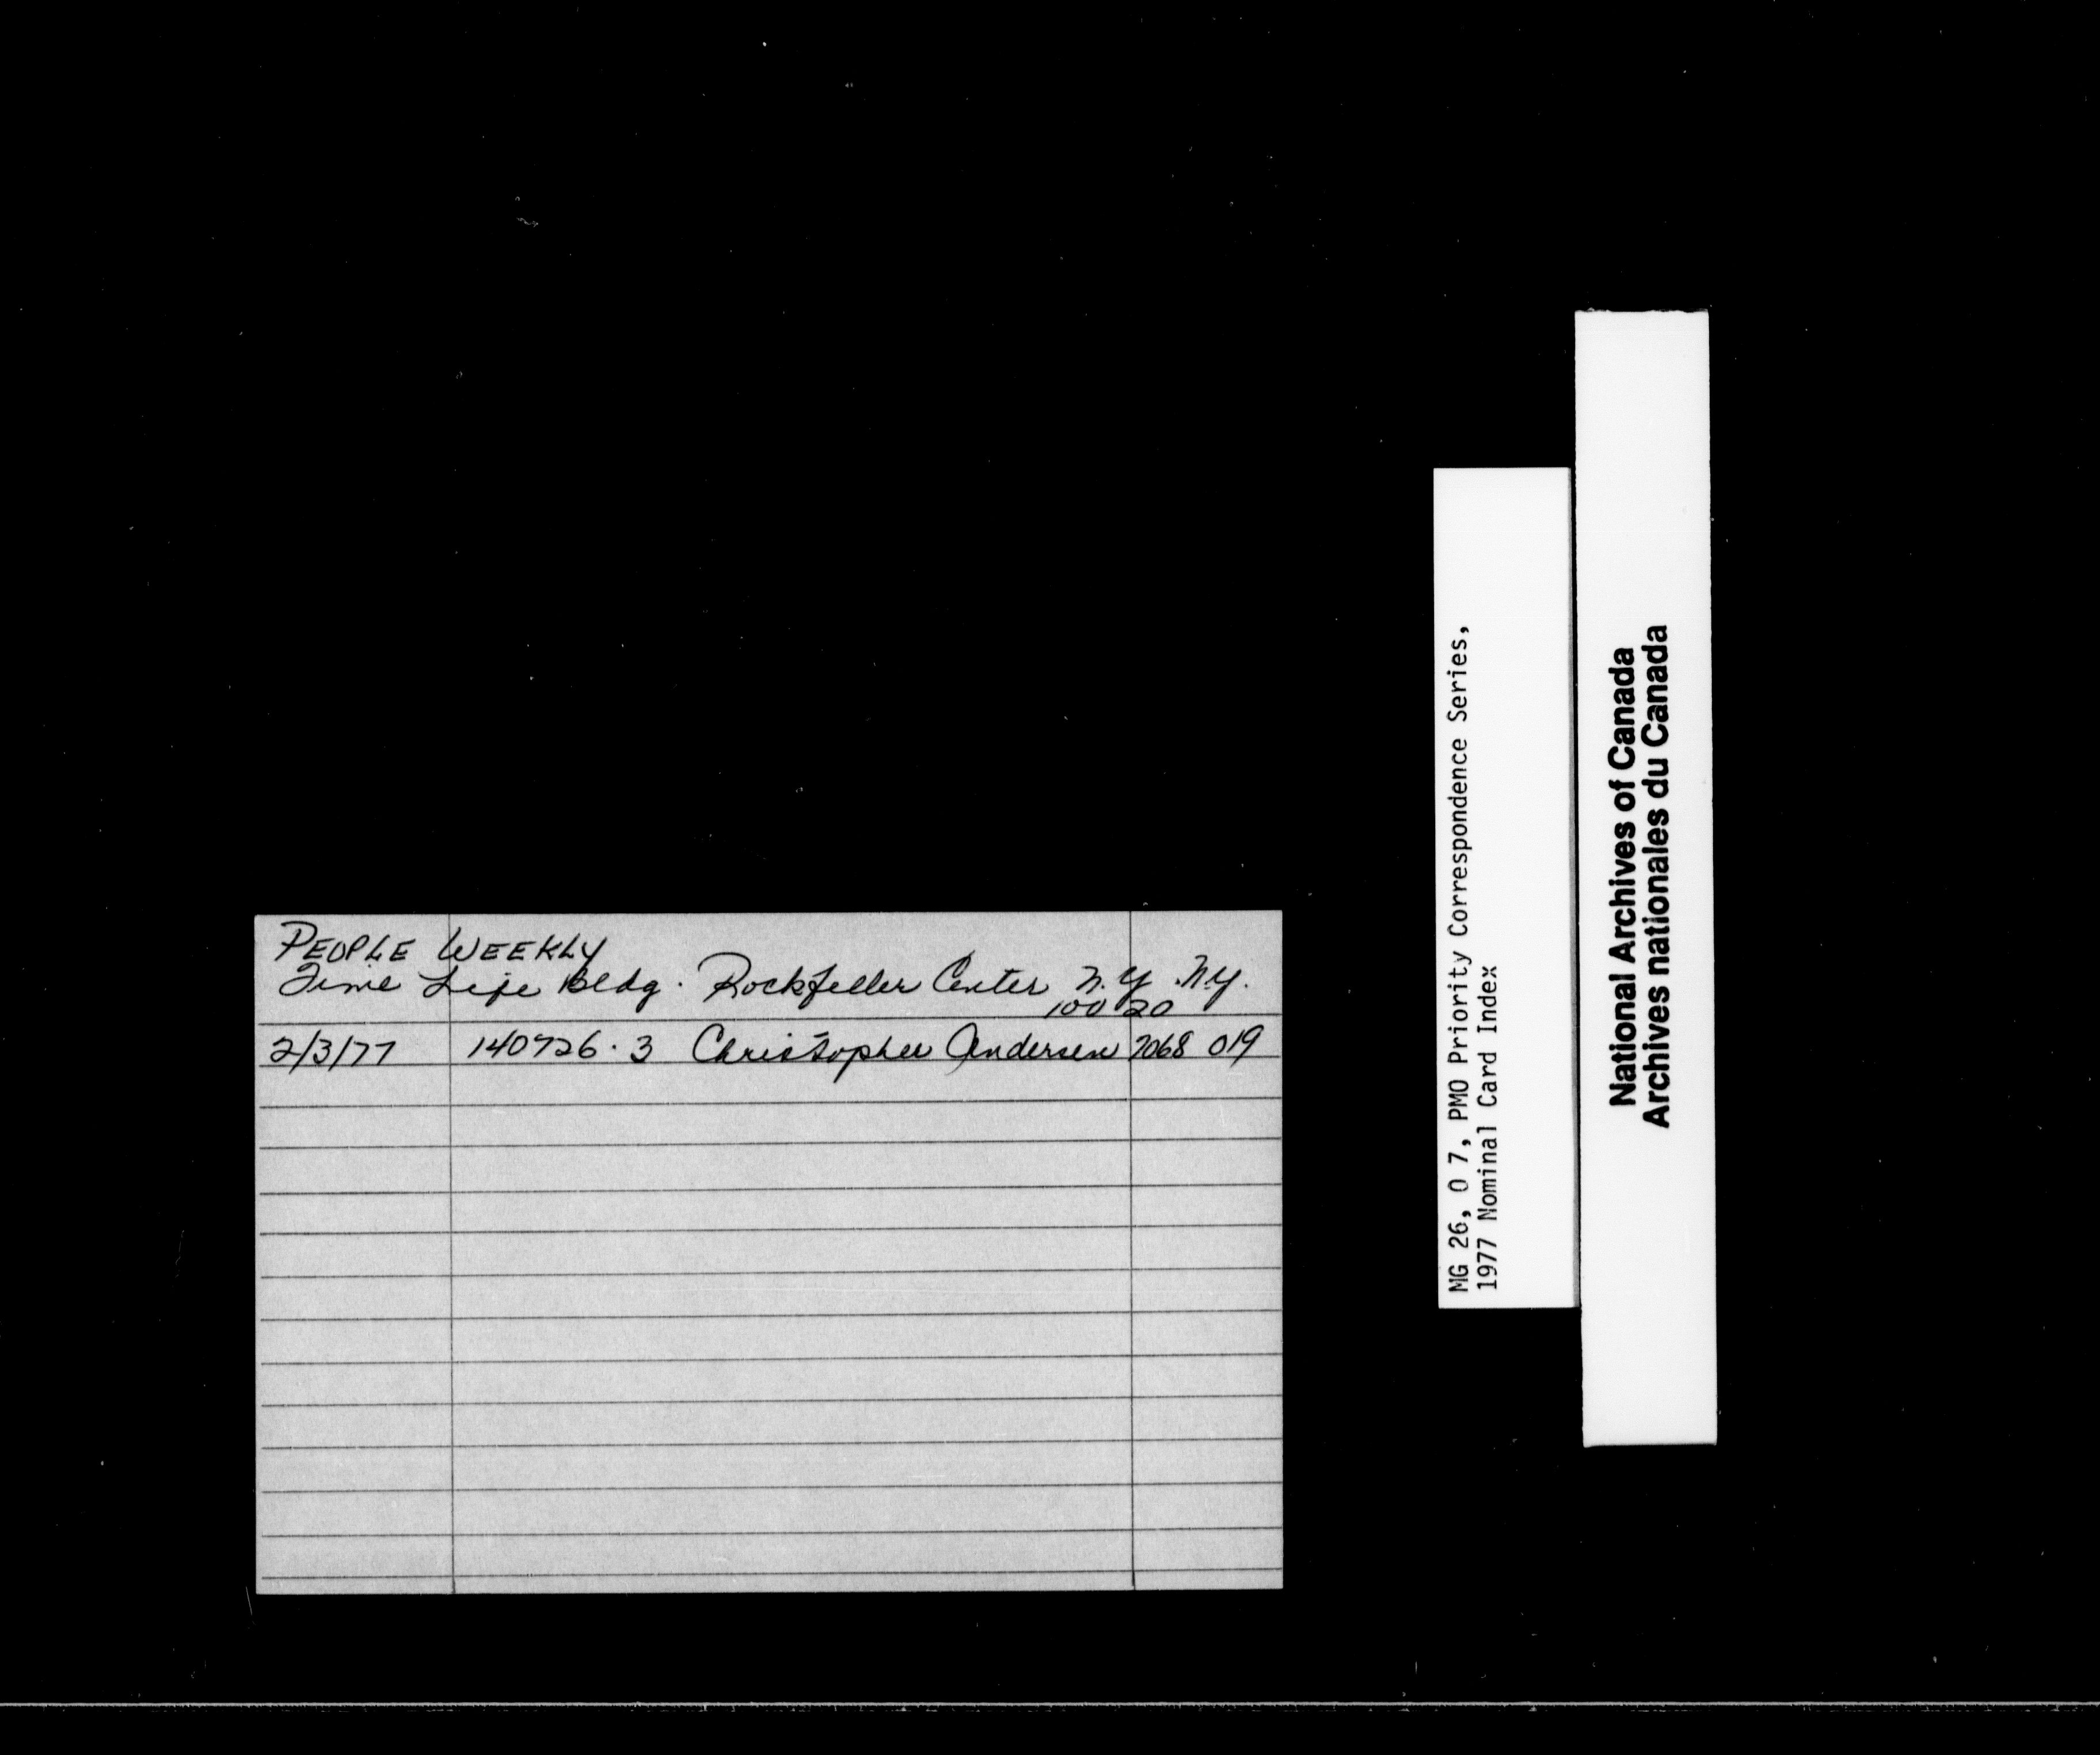 PEOPLE WEEKLY
Time Life Bldg. Rockfeller Center N.Y. N.Y.
10020
2/3/77 140726.3 Christopher Andersen 7068 019
MG 26, O 7, PMO Priority Correspondence Series,
1977 Nominal Card Index
National Archives of Canada
Archives nationales du Canada